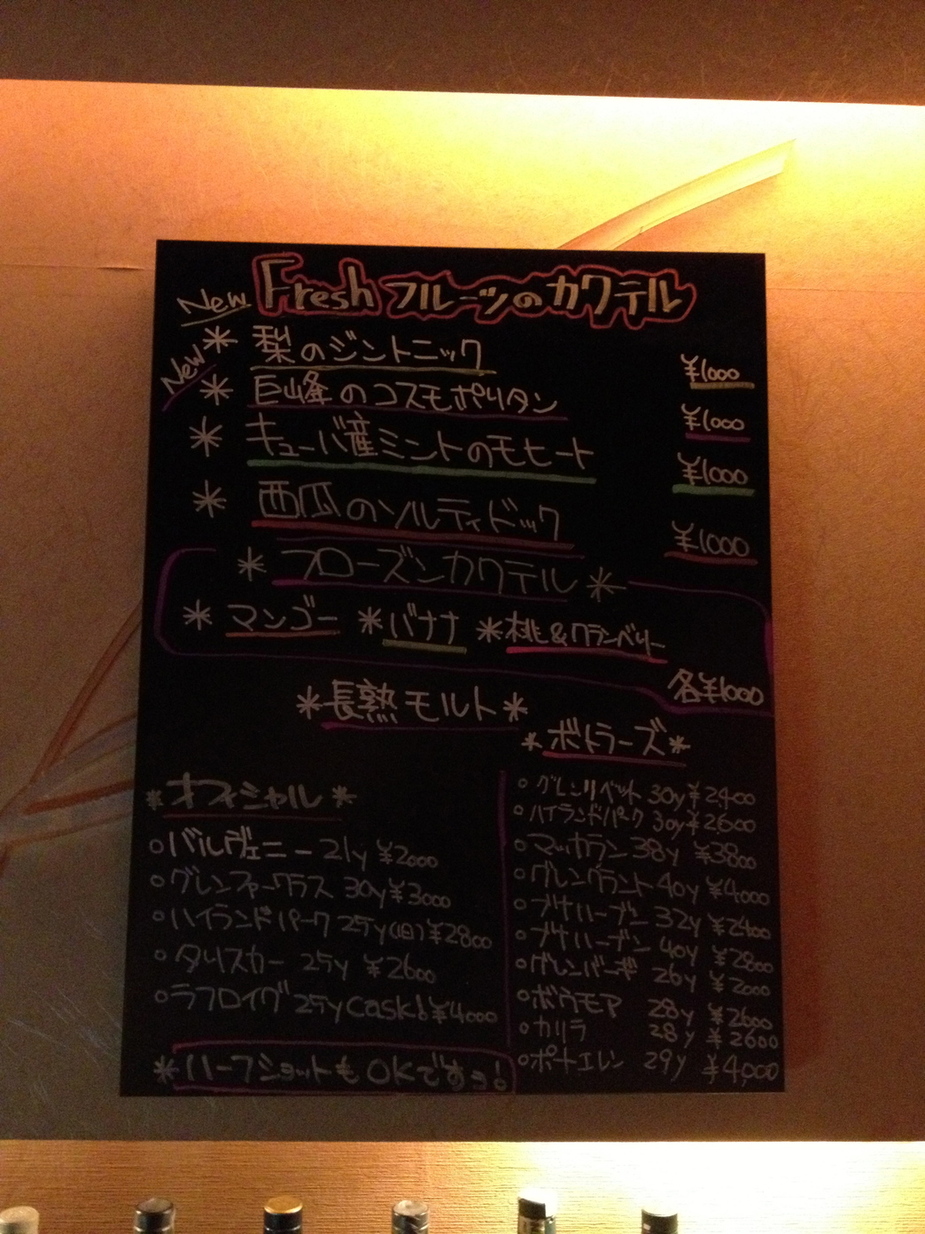 New Fresh フルーツのカクテル
* 梨のジントニック ¥1000
New
* 巨峰のコスモポリタン ¥1000
* キューバ産ミントのモヒート ¥1000
* 西瓜のソルティドック ¥1000
* フローズンカクテル *
* マンゴー * バナナ * 桃&クランベリー
各¥1000
*長熟モルト*
*ボトラーズ*
*オフィシャル*
○バルヴェニー 21y ¥2000
○グレンファークラス 30y ¥3000
○ハイランドパーク 25y(旧) ¥2800
○タリスカー 25y ¥2600
○ラフロイグ 25y cask! ¥4000
*ハーフショットもOKですョ!
○グレンリベット 30y ¥2400
○ハイランドパーク 30y ¥2600
○マッカラン 38y ¥3800
○グレングラント 40y ¥4000
○ブナハーブン 32y ¥2400
○ブナハーブン 40y ¥2800
○グレンバーギ 26y ¥2000
○ボウモア 28y ¥2600
○カリラ 28y ¥2600
○ポートエレン 29y ¥4,000